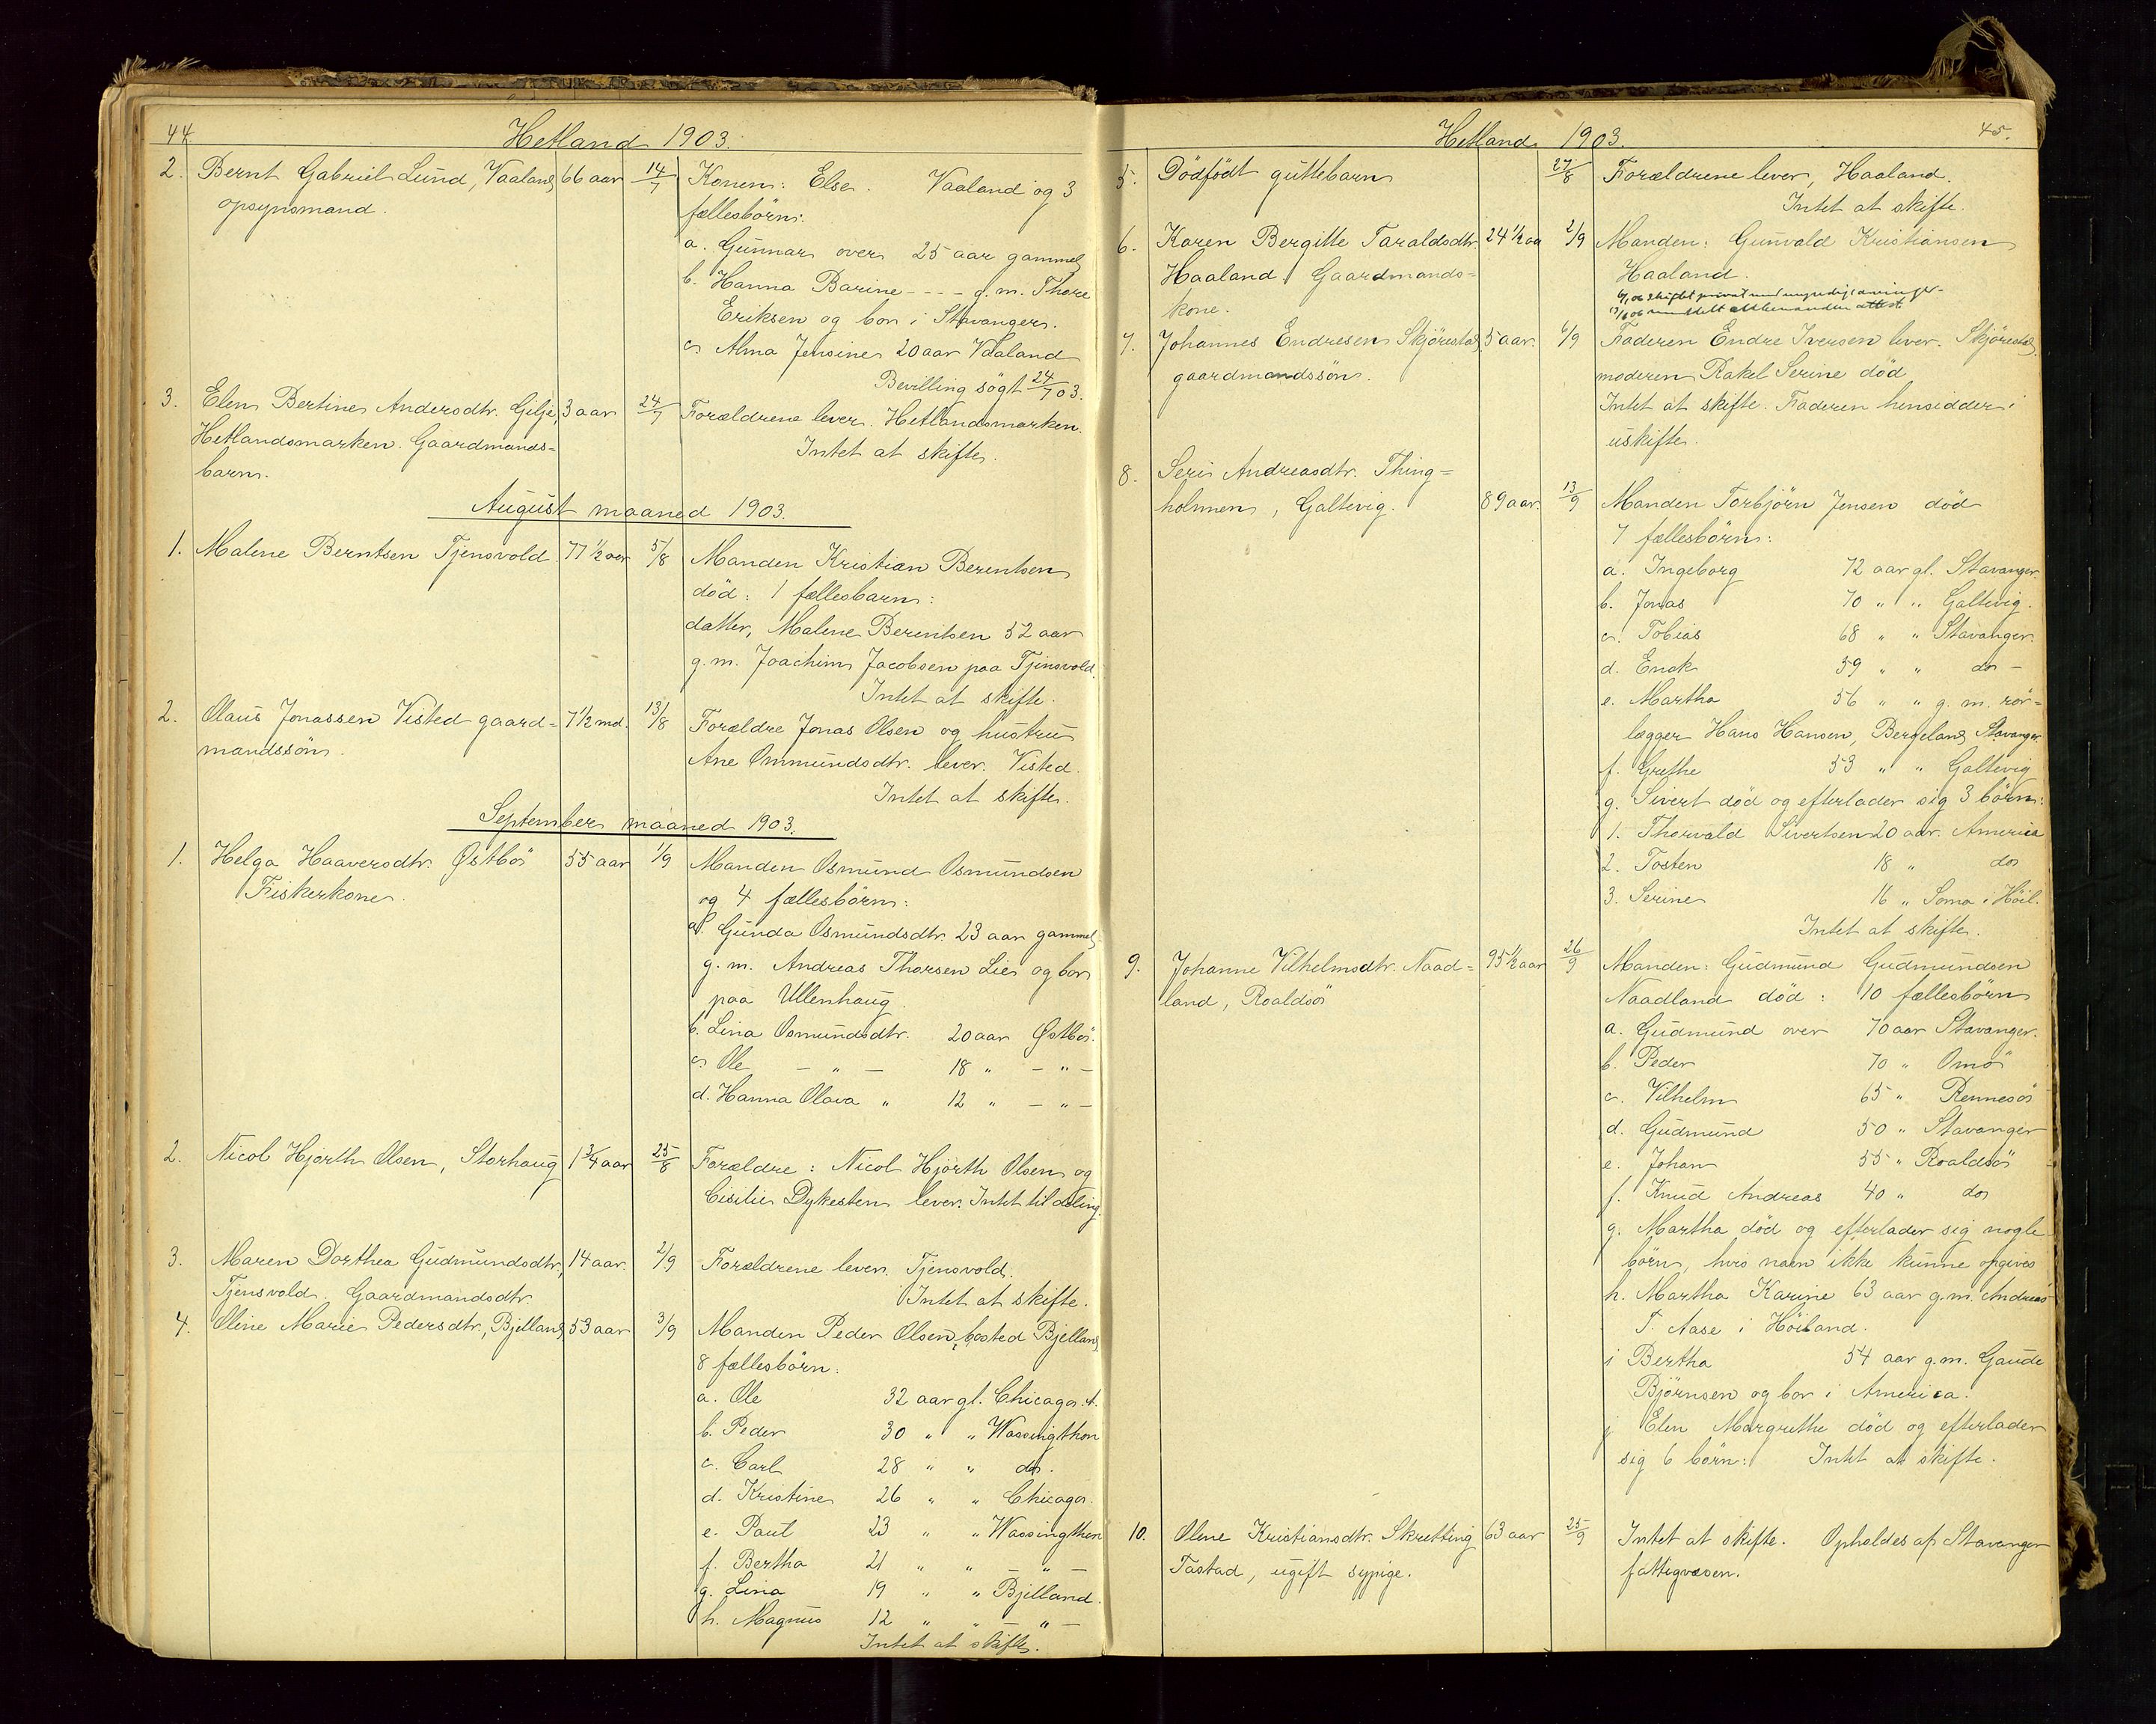 44.
Hetland 1903.
2. Bernt Gabriel Lund, Vaaland 66 aar 14/7 Konen: Else. Vaaland og 3
opsynsmand. fællesbörn:
a. Gunnar over 25 aar gammel
b. Hanna Barine - - - g. m. Thore
Eriksen og bor i Stavanger.
c. Alma Jensine 20 aar Vaaland
Bevilling sögt 24/7 03.
3. Elen Bertine Andersdtr. Gilje, 3 aar 24/7 Forældrene lever. Hetlandsmarken.
Hetlandsmarken. Gaardmands= Intet at skifte.
barn.
August maaned 1903.
1. Malene Berntsen Tjensvold 77 1/2 aar 5/8 Manden Kristian Berentsen
död: 1 fællesbarn:
datter, Malene Berentsen 52 aar
g. m. Joachim Jacobsen paa Tjensvold.
Intet at skifte.
2. Olaus Jonassen Visted gaard= 7 1/2 md. 13/8 Forældre Jonas Olsen og hustru
mandssön. Ane Ommundsdtr. lever. Visted.
Intet at skifte.
September maaned 1903.
1. Helga Haaversdtr. Østbö 55 aar 1/9 Manden Osmund Osmundsen
Fiskerkone. og 4 fællesbörn:
a. Gunda Osmundsdtr. 23 aar gammel
g. m. Andreas Thorsen Lie og bor
paa Ullenhaug.
b. Lina Osmundsdtr. 20 aar Østbö.
c. Ole — „ — 18 „ — „ —
d. Hanna Olava „ 12 „ — „ —
2. Nicol Hjorth Olsen, Storhaug 1 3/4 aar 25/8 Forældre: Nicol Hjorth Olsen og
Cisilie Dykesten lever. Intet til deling.
3. Maren Dorthea Gudmundsdtr., 14 aar. 2/9 Forældrene lever. Tjensvold.
Tjensvold. Gaardmandsdtr. Intet at skifte.
4. Oline Marie Pedersdtr., Bjelland 53 aar 3/9 Manden Peder Olsen, bosted Bjelland.
8 fællesbörn:
a. Ole 32 aar gl. Chicago. A.
b. Peder 30 „ „ Wassingthon
c. Carl 28 „ „ do.
d. Kristine 26 „ „ Chicago.
e. Paul 23 „ „ Wassingthon
f. Bertha 21 „ „ — „ —
g. Lina 19 „ „ Bjelland.
h. Magnus 12 „ „ — „ —
Intet at skifte.
45.
Hetland 1903.
5. Dödfödt guttebarn 27/8 Forældrene lever, Haaland.
Intet at skifte.
6. Karen Bergitte Taraldsdtr. 24 1/2 aa 2/9 Manden: Gunvald Kristiansen
Haaland. Gaardmands= Haaland.
kone. skiftet privat med
attest
7. Johannes Endresen Skjörestad, 5 aar. 6/9 Faderen Endre Iversen lever. Skjörestad,
gaardmandssön. moderen Rakel Serine död
Intet at skifte. Faderen hensidder i
uskifte.
8. Seri Andreasdtr. Thing=
holmen, Galtevig. 89 aar. 13/9 Manden Torbjörn Jensen död
7 fællesbörn:
a. Ingeborg 72 aar gl. Stavanger.
b. Jonas 70 „ „ Galtevig.
c. Tobias 68 „ „ Stavanger.
d. Enok 59 „ „ do —
e. Martha 56 „ „ g. m. rör=
lægger Hans Hansen, Bergeland, Stavanger.
f. Grethe 53 „ „ Galtevig
g. Sivert död og efterlader sig 3 börn:
1. Thorvald Sivertsen 20 aar. America
2. Tosten 18 „ do
3. Serine 16 „ Soma i Höil.
Intet at skifte.
9. Johanne Vilhelmsdtr. Naad= 95 1/2 aar 26/9 Manden: Gudmund Gudmundsen
land, Roaldsö Naadland död: 10 fællesbörn
a. Gudmund over 70 aar Stavanger.
b. Peder 70 „ Omö
c. Vilhelm 65 „ Rennesö
d. Gudmund 50 „ Stavanger
e. Johan 55 „ Roaldsö
f. Knud Andreas 40 „ do
g. Martha död og efterlader sig nogle
börn, hvis navn ikke kunne opgives
h. Martha Karine 63 aar g. m. Andreas
T. Aase i Höiland.
i Bertha 54 aar g. m. Gaude
Björnsen og bor i America.
j Elen Margrethe död og efterlader
sig 6 börn: Intet at skifte.
10. Olene Kristiansdtr. Skretting 63 aar 25/9 Intet at skifte. Opholdes af Stavanger
Tastad, ugift sypige. fattigvæsen.